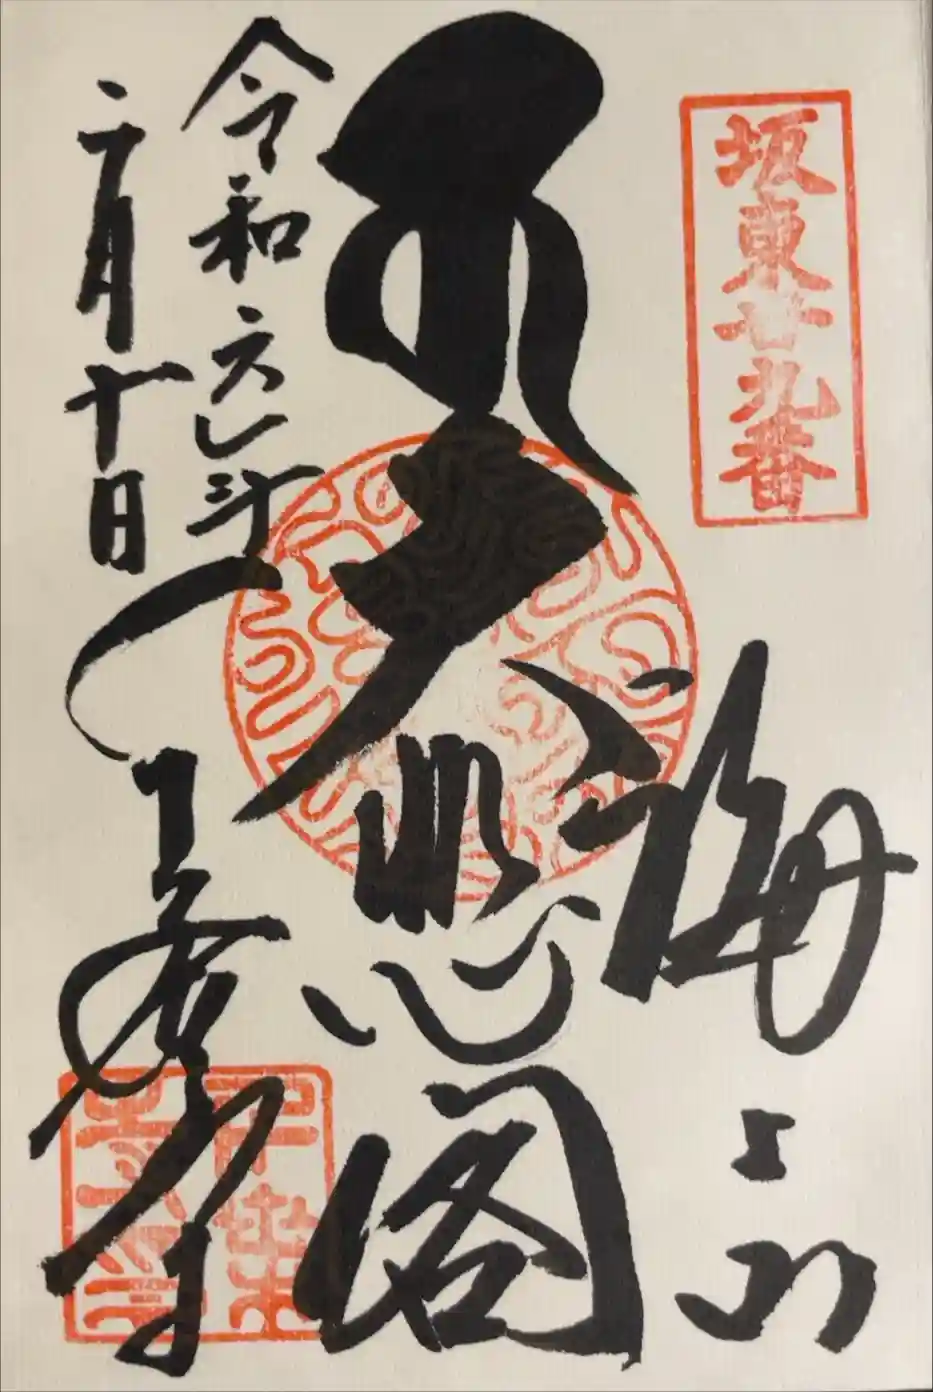 坂東廿九番
海上山
大悲閣
令和六年
二月十日
千葉寺